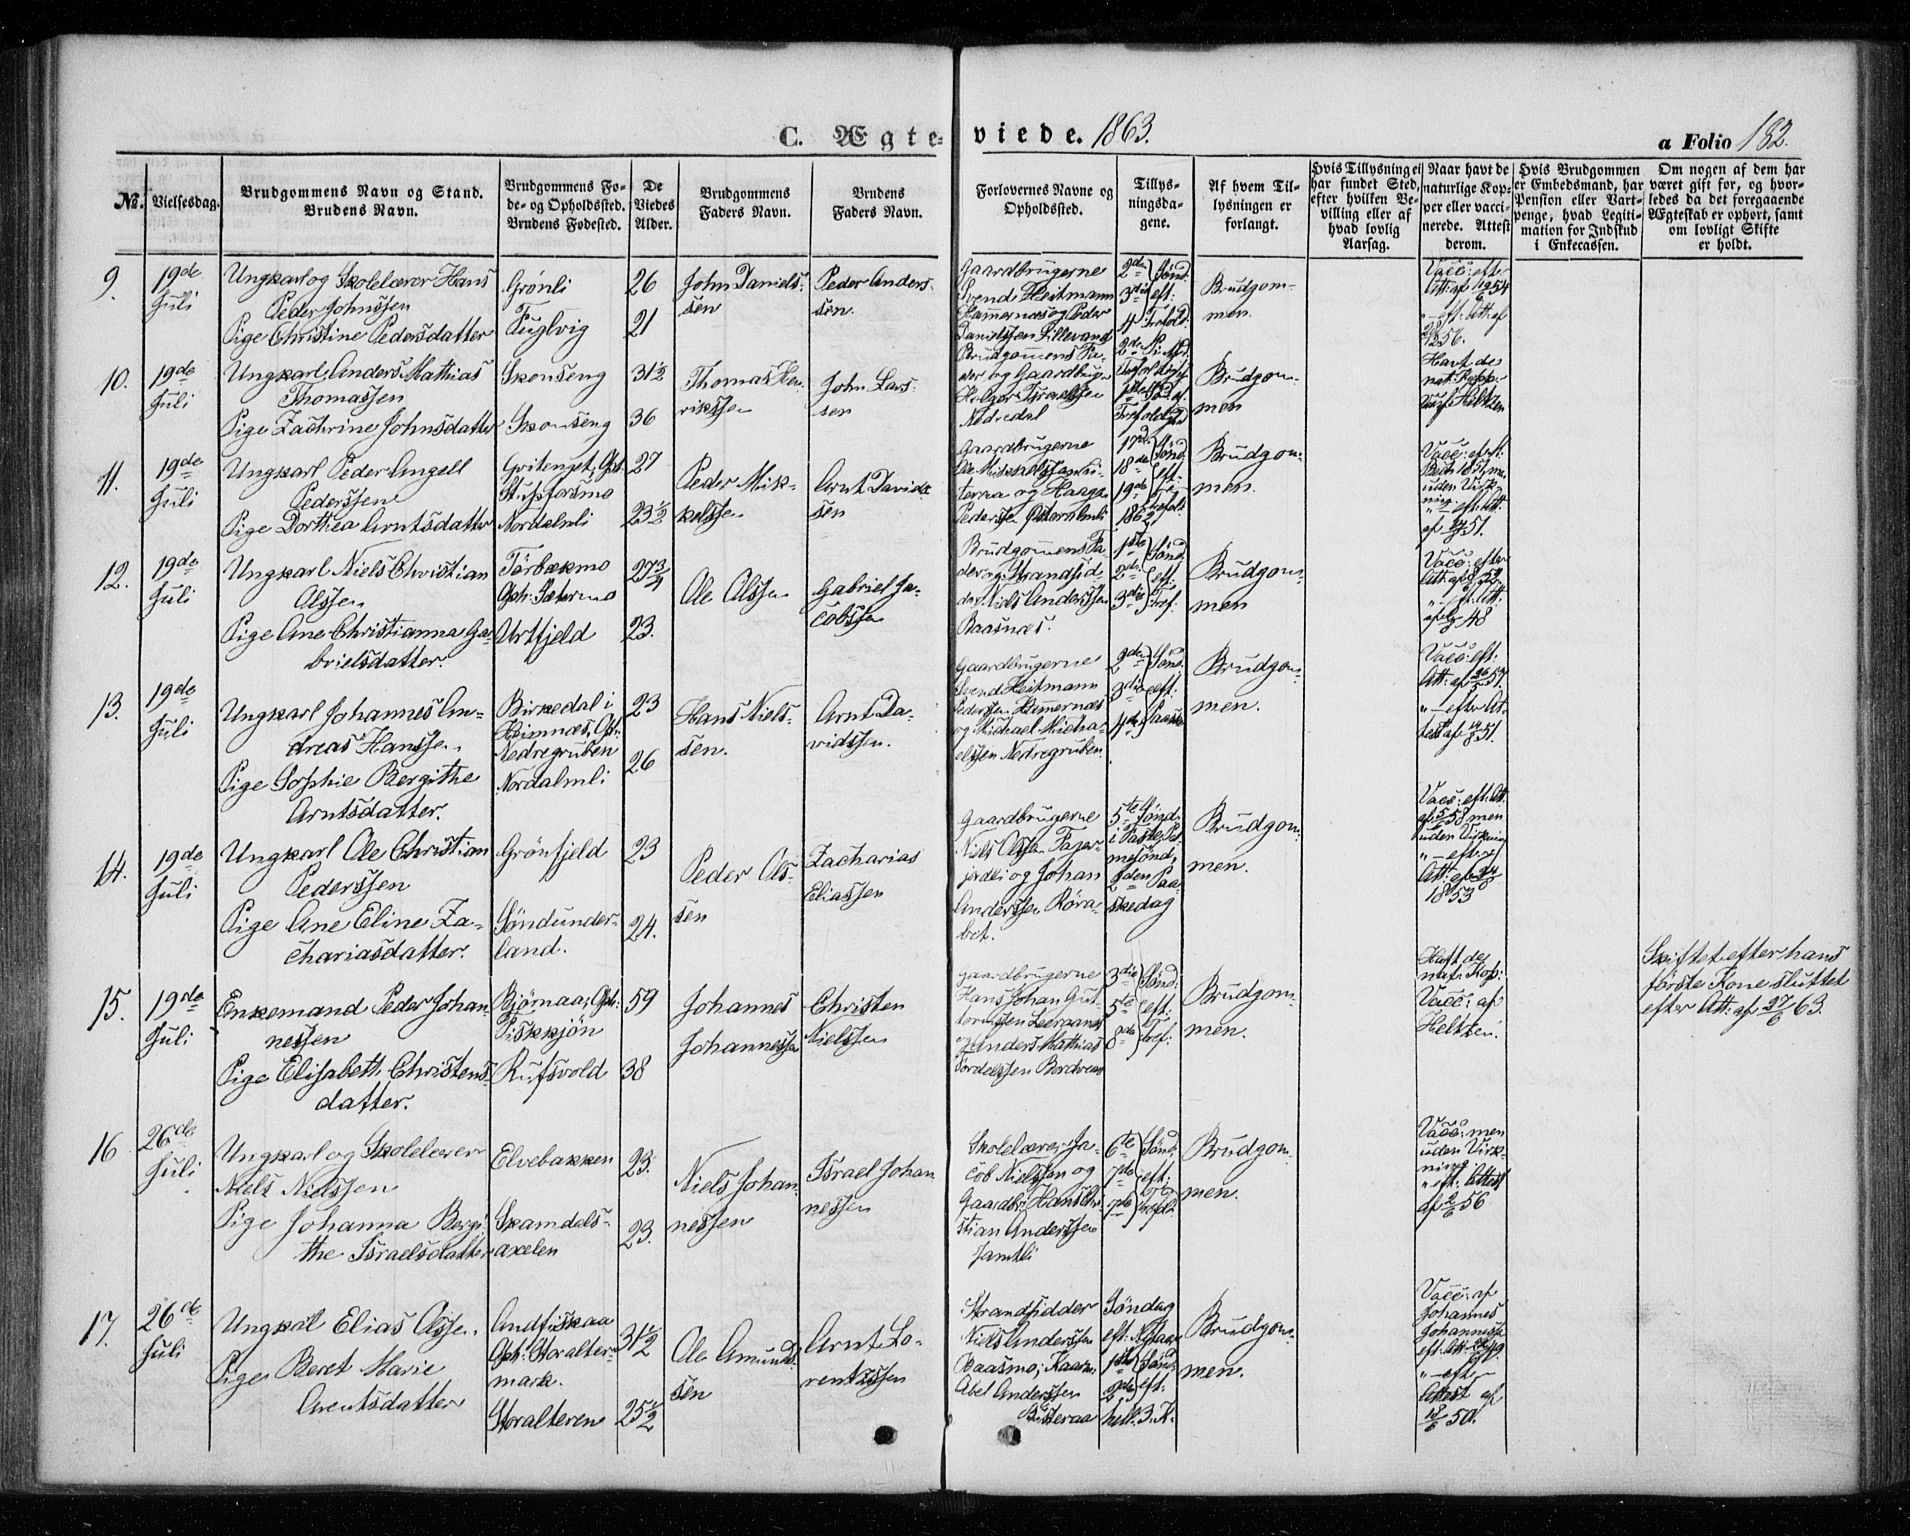 C. Ægteviede. 1863. a Folio 182.
No.
Vielsesdag.
Brudgommens Navn og Stand.
Brudens Navn.
Brudgommens Fø-
de- og Opholdssted.
Brudens Fødested.
De
Viedes
Alder.
Brudgommens
Faders Navn.
Brudens
Faders Navn.
Forlovernes Navne og
Opholdssted.
Tillys-
ningsda-
gene.
Af hvem Til-
lysningen er
forlangt.
Hvis Tillysning ei
har fundet Sted,
efter hvilken Be-
villing eller af
hvad lovlig
Aarsag.
Naar havt de
naturlige Kop-
per eller vacci-
nerede. Attest
derom.
Hvis Brudgommen
er Embedsmand, har
Pension eller Vart-
penge, hvad Legiti-
mation for Indskud
i Enkecassen.
Om nogen af dem har
været gift før, og hvor-
ledes da det foregaaende
Ægteskab er ophørt, samt
om lovligt Skifte
er holdt.
9.
19de
Juli
Ungkarl og Skolelærer Hans
Peder Johnssen
Pige Christine Pedersdatter
Grønli
Fuglvig
26
21
John Daniels-
sen
Peder Anders-
sen.
Gaardbrugerne
Svend Heitmann
Hamernæs og Peder
Danielssen Lillevand
2den Sønd.
3die eft:
4 Trefold.
Brudgom-
men.
Vacc: eft.
10.
19de
Juli
Ungkarl Anders Mathias
Thomassen
Pige Zachrine Johnsdatter
Skonseng
Skonseng
31½
36
Thomas Hen-
rikssen
John Lars-
sen
Brudgommens Fa-
der og Gaardbrug.
Holger Israelssen
Nedredal
Brudgom-
men
Havt de
nat: Kopp.
11.
19de
Juli
Ungkarl Peder Angell
Pederssen
Pige Dorthea Arntsdatter
Stupforsmo
Nordalmli
27
23½
Peder Mik-
kelssen
Arnt Davids-
sen
Gaardbrugerne
Pederssen
17de Sønd.
18de eft.
19de
1862
Brudgom-
men.
uden Virk-
ning.
12.
19de
Juli
Ungkarl Niels Christian
Olssen
Pige Ane Christianna Ga-
brielsdatter.
Tørbækmo
Oph: Sætermo
Urtfjeld
27¾
23.
Ole Olssen
Gabriel Ja-
cobssen
Brudgommens Fa-
der og Strandsid-
der Niels Anderssen
Baasnæs.
1ste Sønd.
2den eft.
3die Tref.
Brudgom-
men
Vacc: efter
13.
19de
Juli
Ungkarl Johannes An-
dreas Hanssen.
Pige Sophie Bergithe
Arntsdatter.
Birkedal i
Heimnæs, Oph:
Nedregruben
Nordalmli
23
26
Hans Niels-
sen.
Arnt Da-
vidssen.
Gaardbrugerne
Svend Heitmann
Pederssen Hamernæs
og Michael Micha-
elssen Nedregruben
2den Sønd.
3die eft:
4de Paaske
Brudgom-
men.
Vacc: eft:
14.
19de
Juli
Ungkarl Ole Christian
Pederssen
Pige Ane Eline Za-
chariasdatter.
Grønfjeld
Søndunder-
land.
23
24.
Peder Ols-
sen
Zacharias
Eliassen
Gaardbrugerne
og Johan
Anderssen Røra-
bet.
5te Sønd.
i Faste, Pal-
mesønd,
2den Paa-
skedag
Brudgom-
men.
Vacc: eft: Att.
af 5/5 58, men
uden Virkning
1853
15.
19de
Juli
Enkemand Peder Johan-
nessen
Pige Elisabeth Christens-
datter.
Bjørnaa, Oph:
Piskkjøn
Rufsvold
59
38
Johannes
Johannessen
Christen
Nielssen
Gaardbrugerne
Hans Johan Gut-
tormssen Leeraanes
og Anders Mathias
3die Sønd.
5te eft:
8de Tref:
Brudgom-
men.
Haft de
nat: Kop:
Vacc: af
Heltzen
Skiftet efter hans
første Kone sluttet
efter Att: af 27/6 63.
16
26de
Juli
Ungkarl og Skolelærer
Niels Nielssen
Pige Johanna Bergi-
the Israelsdatter
Elvebakken
Skamdals-
axelen
23.
23.
Niels Johan-
nessen
Israel Johan-
nessen
Skolelærer Ja-
cob Nielssen og
Gaardbr: Hans Chri-
stian Anderssen
Jamtli
6te Sønd.
7de eft:
Brudgom-
men.
Vacc: men
uden Virk-
ning
" eft. Attest
af 2/6 56
17.
26de
Juli
Ungkarl Elias Olssen.
Pige Beret Marie
Arentsdatter
Andfiskaa
Oph: Storalter-
mark.
Storalteren
31½
25½
Ole Amunds-
sen
Arnt Lo-
rentzssen
Strandsidder
Niels Anderssen
Baasmo,
Abel Anderssen
Søndag
eft: Nytaar
1ste Sønd.
2den eft:
hell. 3. K.
Brudgom-
men.
Vacc: af
Johannes
Johannessen
" efter
Attest af